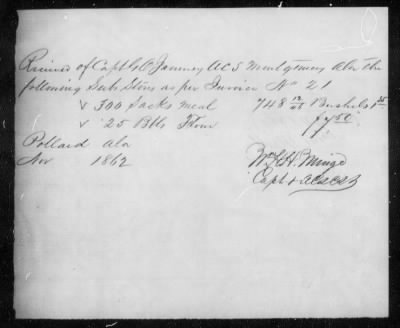 Received of Capt G P January ACS Montgomery Ala the
following Sub. Stores as per Invoice No 21
v 300 Sacks Meal 748 12/48 Bushels
v 25 Bbls Flour
Pollard Ala
Nov 1862
Wm H. Minge
Capt & ACS CSA